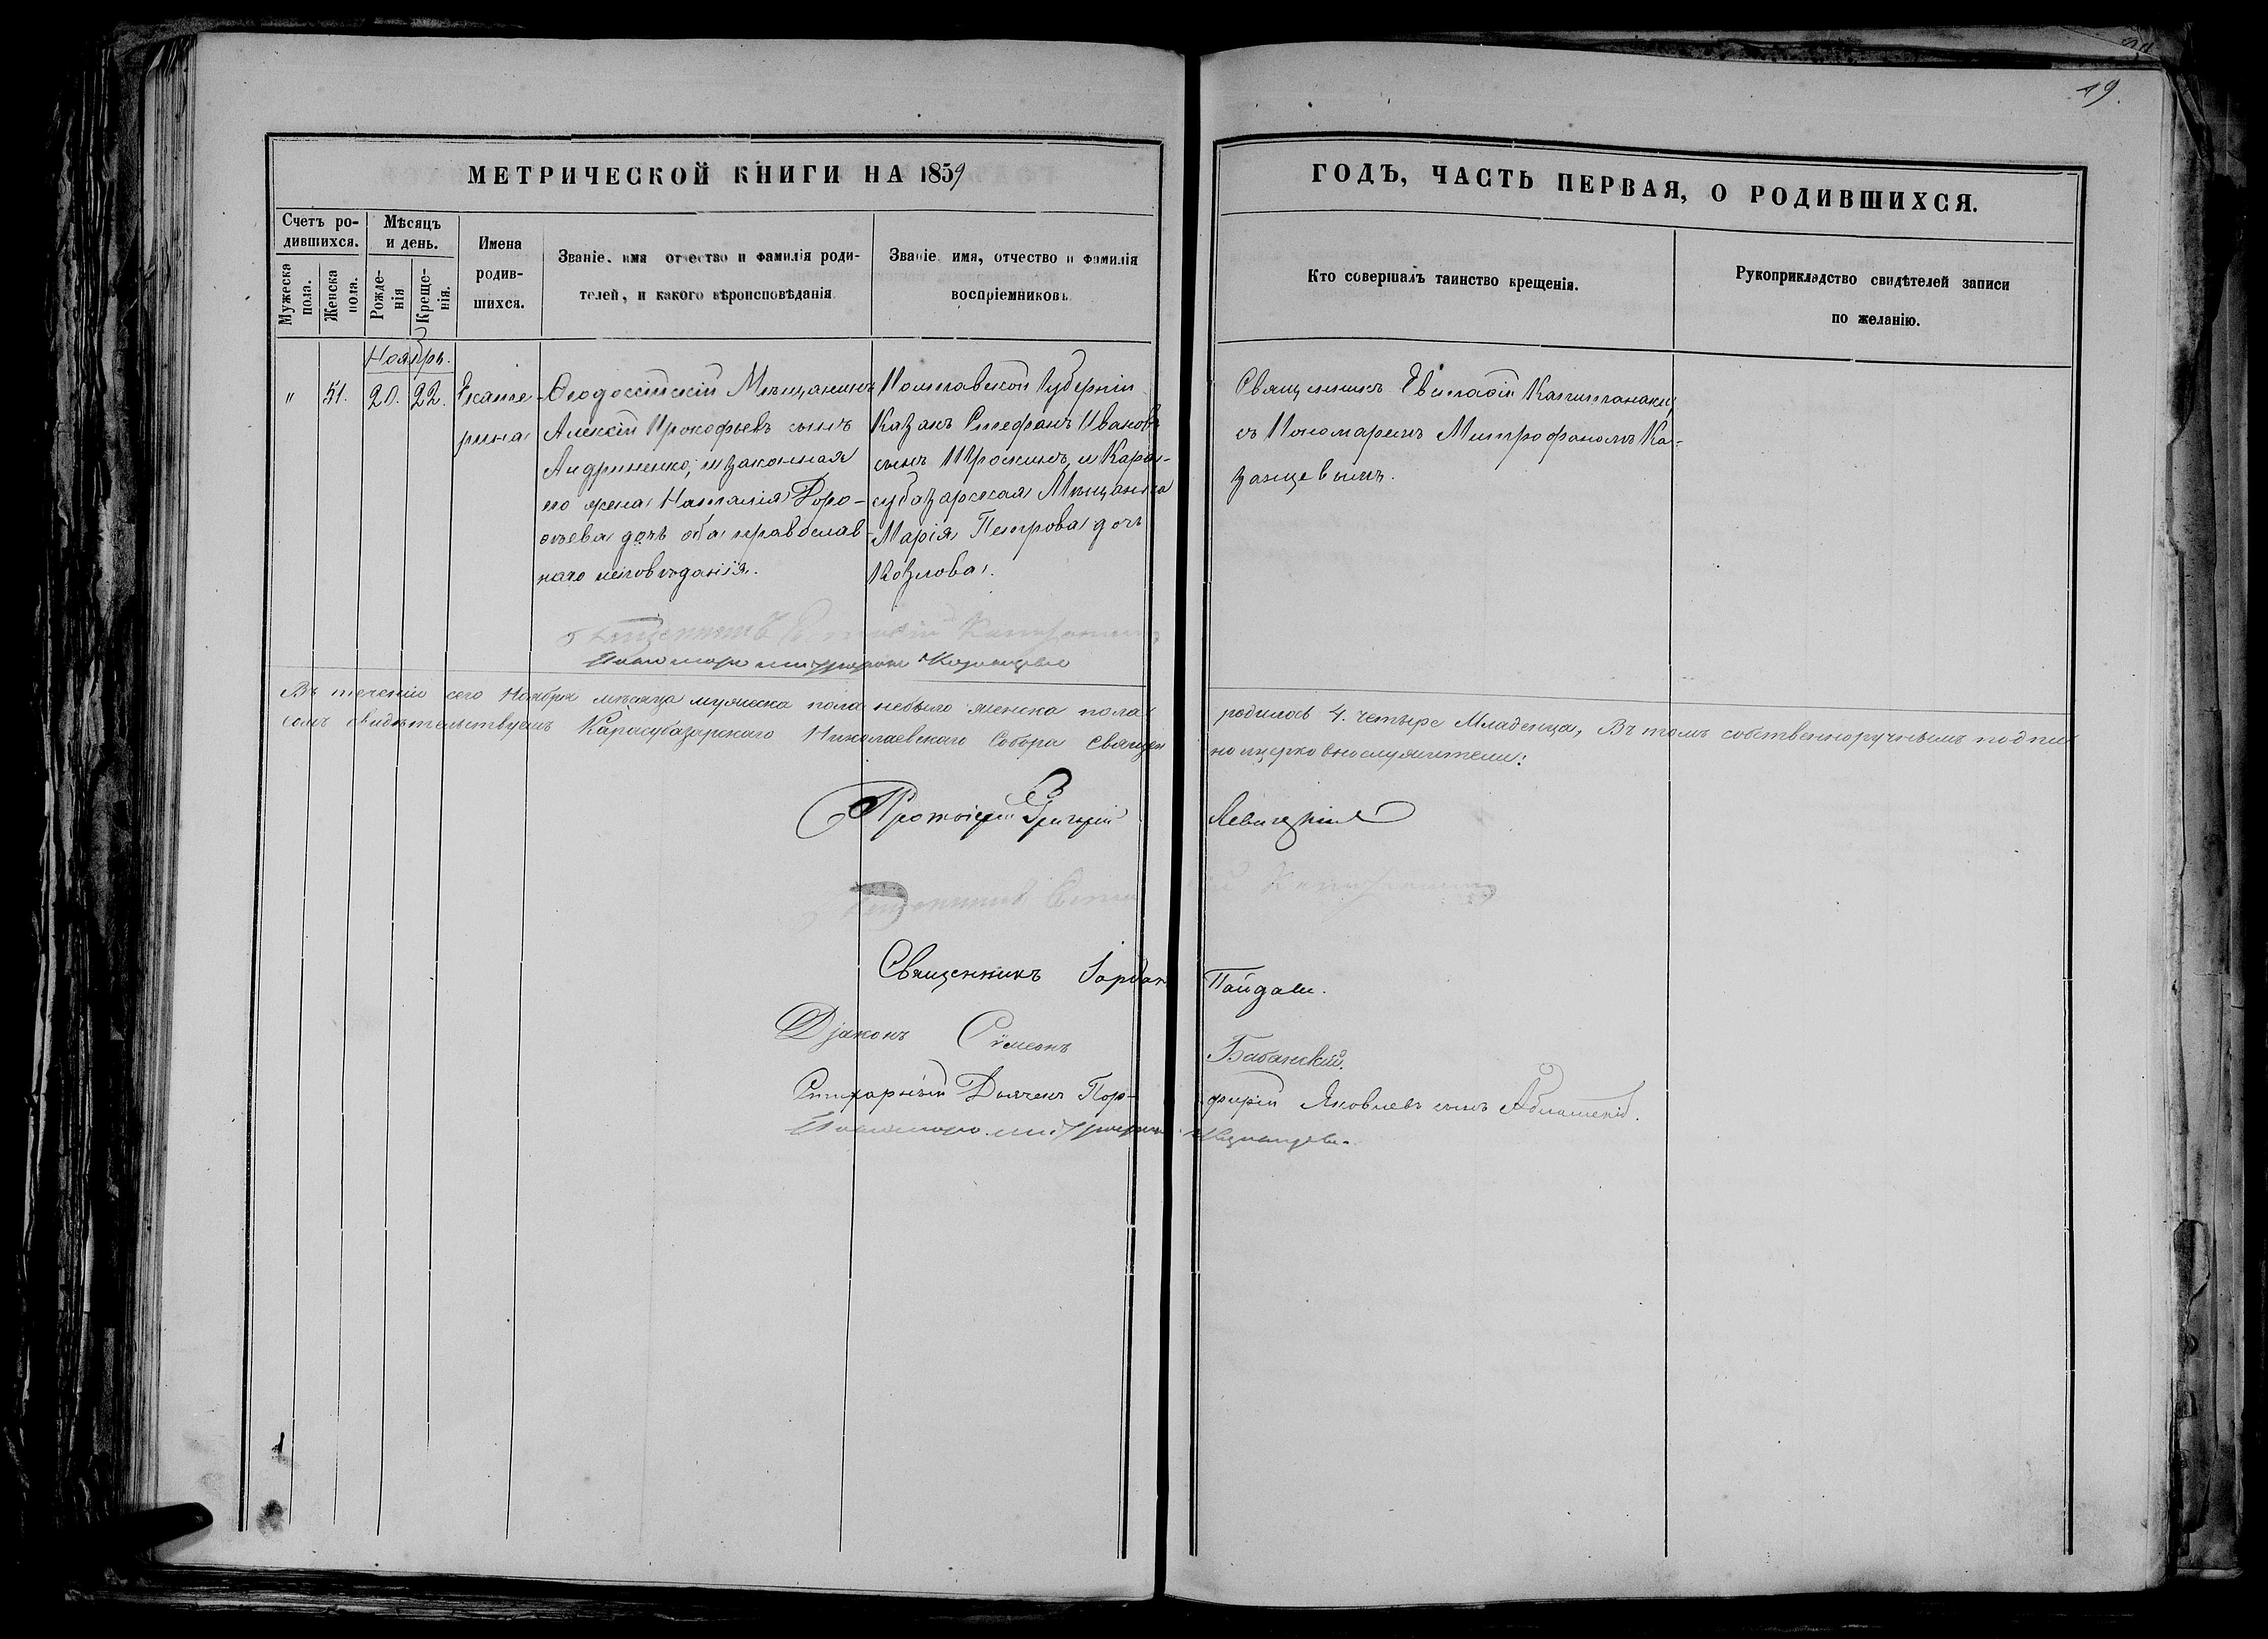 19.
МЕТРИЧЕСКОЙ КНИГИ НА 1859
ГОДЪ, ЧАСТЬ ПЕРВАЯ, О РОДИВШИХСЯ.
Счетъ ро-
дившихся.
Мужеска
пола.
Женска
пола.
Мѣсяцъ
и день.
Рожде-
нія
Креще-
нія.
Имена
родив-
шихся.
Званіе, имя отчество и фамилія роди-
телей, и какого вѣроисповѣданія
Званіе, имя, отчество и фамилія
воспріемниковъ
Кто совершалъ таинство крещенія.
Рукоприкладство свидѣтелей записи
по желанію.
Ноябрь.
" 51. 20. 22.
Екате-
рина
Ѳеодосійскій Мѣщанинъ
Алексѣй Прокофьевъ сынъ
Андриненко, и законная
его жена Наталія Доро-
ѳѣева дочь оба православ-
наго исповѣданія.
Полтавской Губерніи
Казакъ Стефанъ Ивановъ
сынъ Трошинъ, и Кара-
субазарская Мѣщанка
Марія Петрова дочь
Козлова.
Священникъ Евстафій
съ Пономаремъ Митрофаномъ Ка-
занцевымъ.
Священникъ Евстафій
Пономарь Митрофанъ Казанцевъ
Въ теченіи сего Ноября мѣсяца мужеска пола небыло женска пола родилось 4. четыре Младенца, Въ томъ собственноручнымъ подпи-
сомъ свидѣтельствуемъ Карасубазарскаго Николаевскаго Собора Священ но церковнослужители:
Протоіерей Григорій Левицкій
Священникъ
Священникъ Іорданъ Пайдаси.
Діаконъ Сѵмеонъ Бабанскій.
Стихарный Дьячекъ Пор- фирій Яковлевъ сынъ
Пономарь Митрофанъ Казанцевъ.